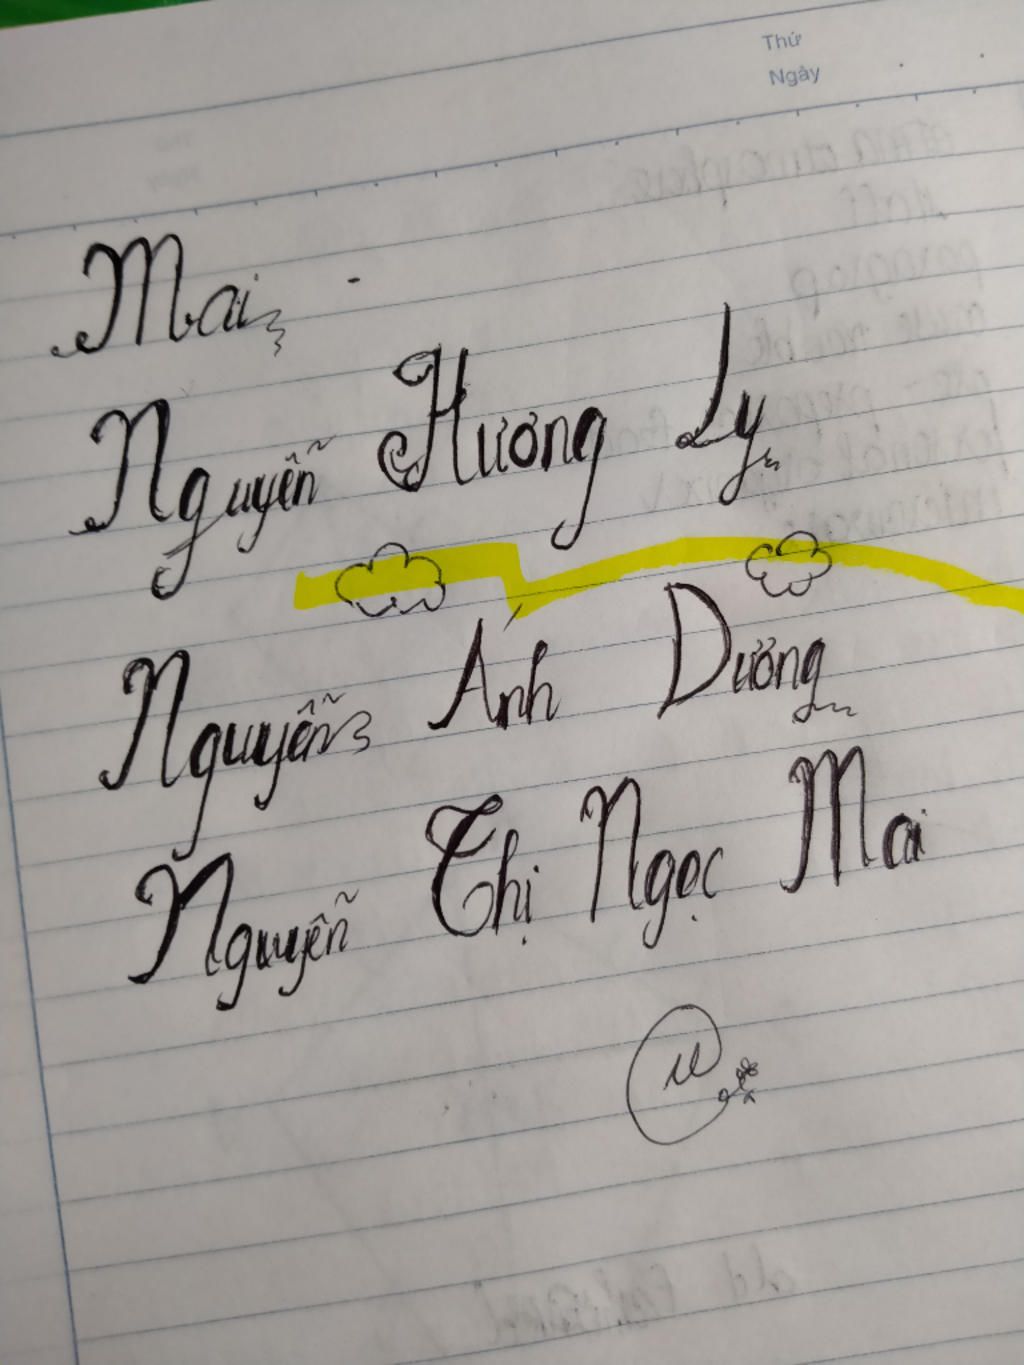 Thứ
Ngày
Mai
Nguyễn Hương Ly
Nguyễn Ánh Dương
Nguyễn Thị Ngọc Mai